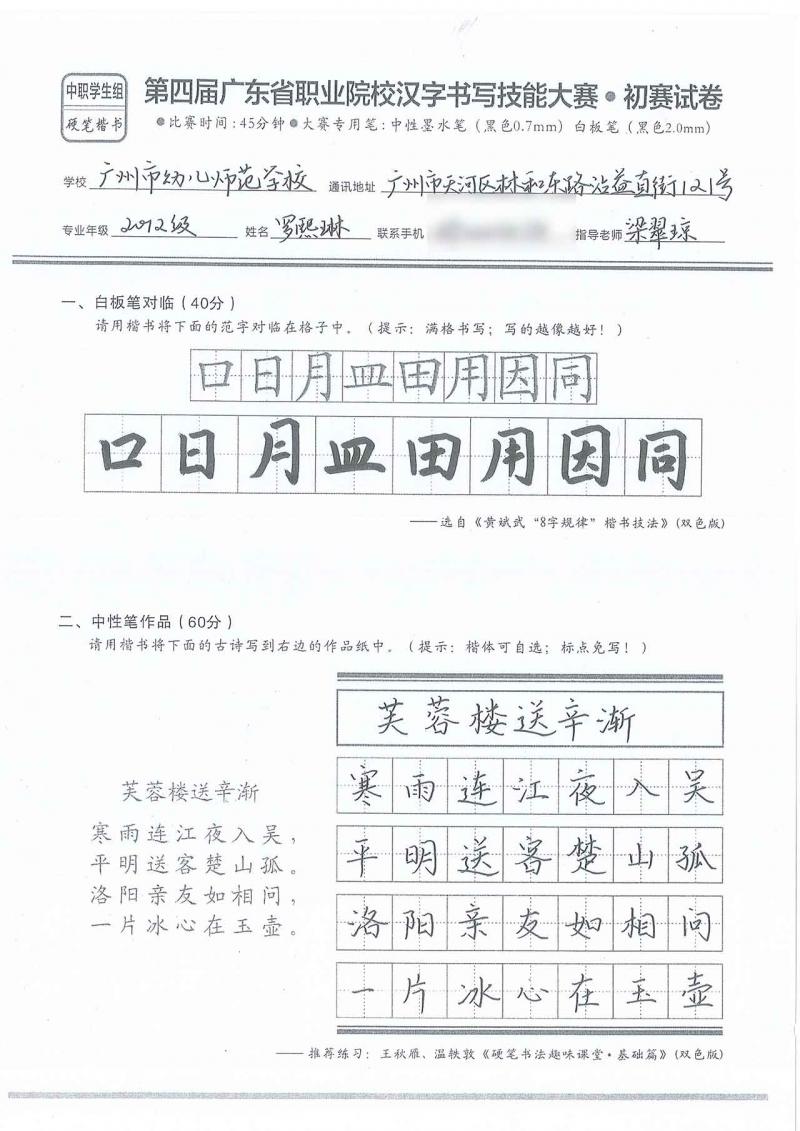 中职学生组
硬笔楷书
第四届广东省职业院校汉字书写技能大赛•初赛试卷
●比赛时间：45分钟●大赛专用笔：中性墨水笔（黑色0.7mm）白板笔（黑色2.0mm）
学校 广州市幼儿师范学校 通讯地址 广州市天河区林和东路沾益直街121号
专业年级 2012级 姓名 罗熙琳 联系手机 指导老师 梁翠琼
一、白板笔对临（40分）
请用楷书将下面的范字对临在格子中。（提示：满格书写；写的越像越好！）
口日月皿田用因同
口日月皿田用因同
——选自《黄斌武“8字规律”楷书技法》（双色版）
二、中性笔作品（60分）
请用楷书将下面的古诗写到右边的作品纸中。（提示：楷体可自选；标点免写！）
芙蓉楼送辛渐
寒雨连江夜入吴，
平明送客楚山孤。
洛阳亲友如相问，
一片冰心在玉壶。
芙蓉楼送辛渐
寒雨连江夜入吴
平明送客楚山孤
洛阳亲友如相问
一片冰心在玉壶
——推荐练习：王秋雁、温轶敦《硬笔书法趣味课堂·基础篇》（双色版）